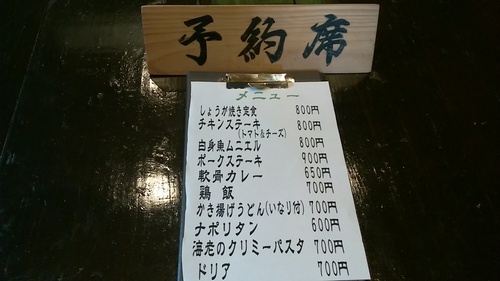 予約席
メニュー
しょうが焼き定食 800円
チキンステーキ 800円
(トマト&チーズ)
白身魚ムニエル 800円
ポークステーキ 900円
軟骨カレー 650円
鶏飯 700円
かき揚げうどん(いなり付) 700円
ナポリタン 600円
海老のクリミーパスタ 700円
ドリア 700円